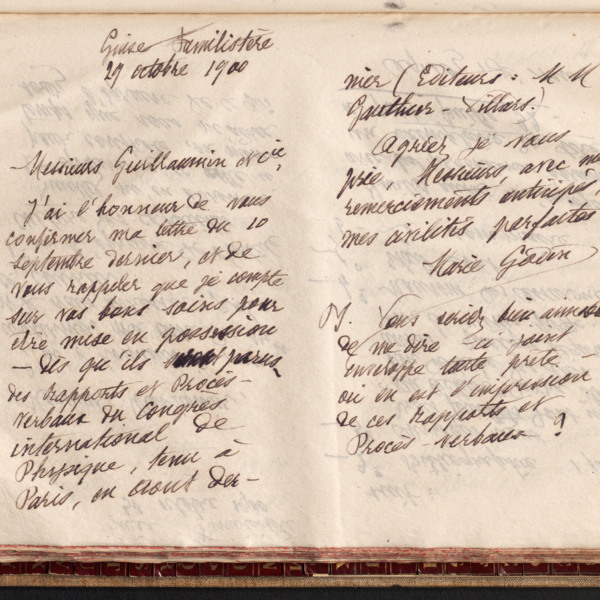 Guise Familistère
29 octobre 1900
Messieurs Guillaumin et Cie,
J'ai l'honneur de vous
confirmer ma lettre du 10
septembre dernier, et de
vous rappeler que je compte
sur vos bons soins pour
être mise en possession
— dès qu'ils seront parus
des rapports et Procès-
verbaux du Congrès
international de
Physique, tenu à
Paris, en août der-
nier (Editeurs : M M
Gauthier-Villars.)
Agréez je vous
prie, Messieurs, avec mes
remerciements anticipés,
mes civilités parfaites
Marie Godin
PS. Vous seriez bien aimables
de me dire ci joint
enveloppe toute prête —
où en est l'impression
de ces rapports et
Procès-verbaux ?